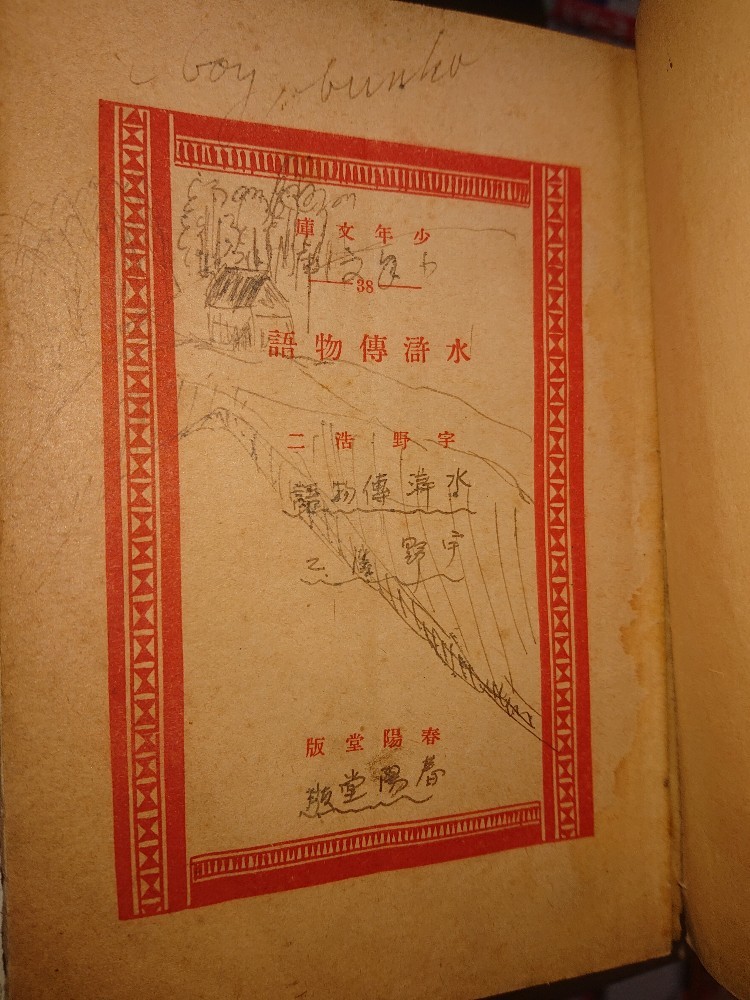 boy bunko
少年文庫
少年文庫
38
水滸傳物語
宇野浩二
水滸傳物語
宇野浩二
春陽堂版
春陽堂版